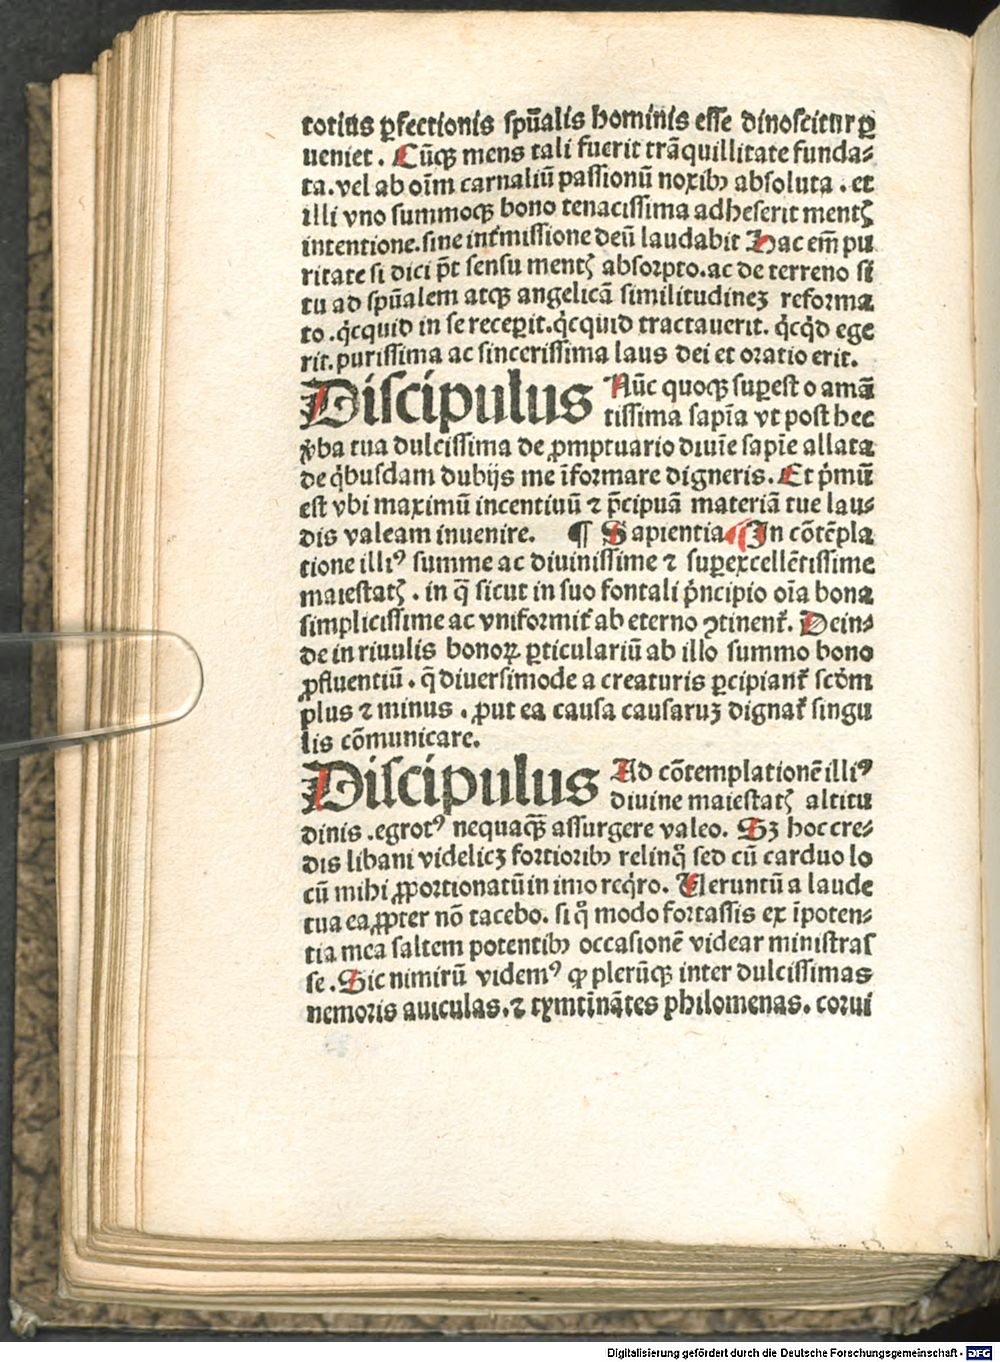 totius ꝑfectionis spũalis hominis esse dinoscitur ꝑ
ueniet . Cũqꝫ mens tali fuerit trãquillitate funda⸗
ta. vel ab oĩm carnaliũ passionũ noxibꝰ absoluta . et
illi vno summoqꝫ bono tenacissima adheserit mentꝭ
intentione. sine int̃missione deũ laudabit Hac em̃ pu
ritate si dici põt sensu mentꝭ absorpto. ac de terreno si
tu ad spũalem atqꝫ angelicã similitudinez reforma
to . q̇cquid in se receꝑit. q̇cquid tractauerit. q̇cq̇d ege
rit. purissima ac sincerissima laus dei et oratio erit.
Discipulus Nũc quoqꝫ suꝑest o amã
tissima sapĩa vt post hec
v̾ba tua dulcissima de ꝓmptuario diuĩe sapĩe allata
de q̇busdam dubijs me ĩformare digneris. Et p̾mũ
est vbi maximũ incentiuũ ⁊ p̃cipuã materiã tue lau⸗
dis valeam inuenire. ¶ Sapientia In cõtẽpla
tione illiꝰ summe ac diuinissime ⁊ suꝑexcellẽtissime
maiestatꝭ . in q̃ sicut in suo fontali p̾ncipio oĩa bona
simplicissime ac vniformit̾ ab eterno ꝯtinent̾. Dein⸗
de in riuulis bonoꝝ ꝑticulariũ ab illo summo bono
ꝓfluentiũ . q̃ diuersimode a creaturis ꝑcipiant̾ scd̾m
plus ⁊ minus . ꝓut ea causa causaruz dignat̾ singu
lis cõmunicare.
Discipulus Ad cõtemplationẽ illiꝰ
diuine maiestatꝭ altitu
dinis . egrotꝰ nequaqꝫ̃ assurgere valeo. Sꝫ hoc ce⸗
dis libani videlicꝫ fortioribꝰ relinq̊ sed cũ carduo lo
cũ mihi ꝓportionatũ in imo req̇ro. Ueruntũ a laude
tua ea ꝓpter nõ tacebo. si q̊ modo fortassis ex ĩpoten⸗
tia mea saltem potentibꝰ occasionẽ videar ministras
se . Sic nimirũ videmꝰ ꝙ plerũqꝫ inter dulcissimas
nemoris auiculas. ⁊ tymtĩnãtes philomenas. corui
Digitalisierung gefördert durch die Deutsche Forschungsgemeinschaft - DFG